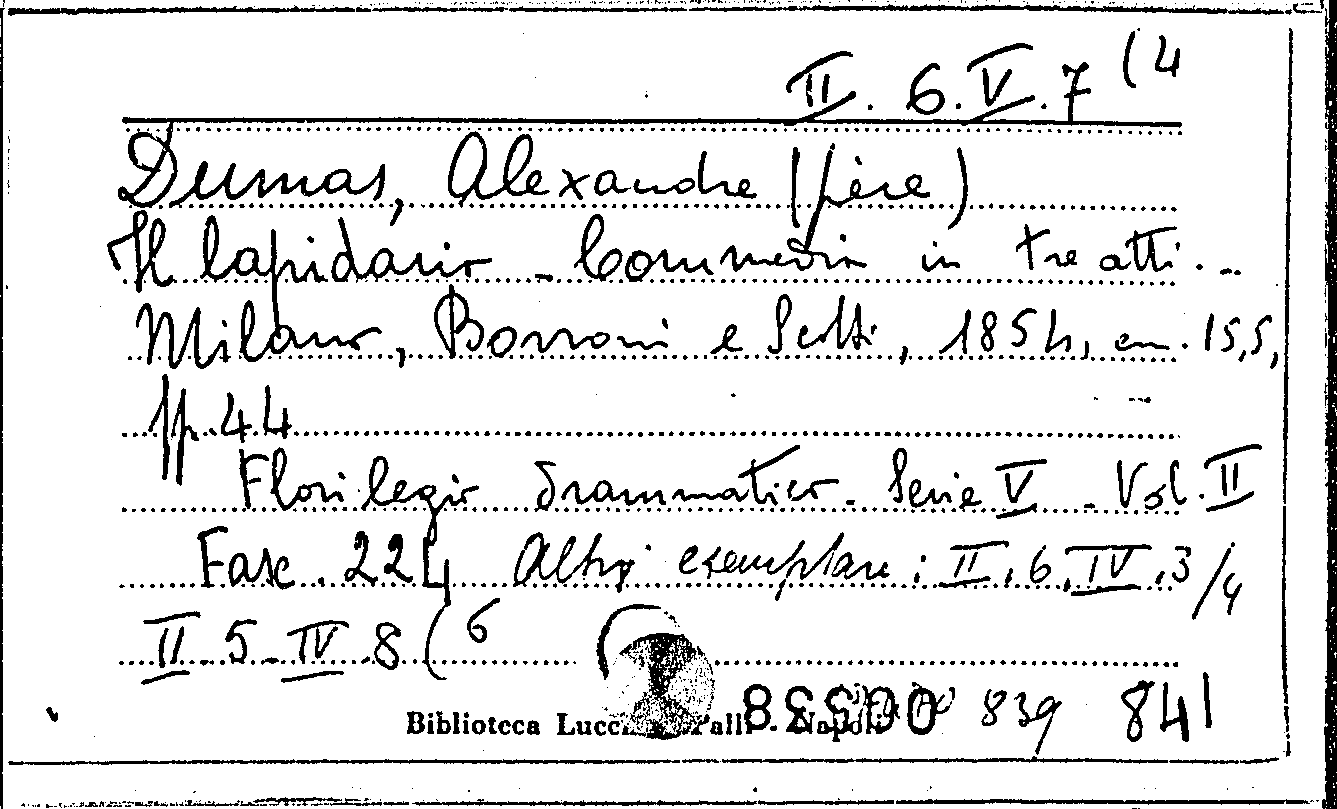 II. 6. V. 7 (4
Dumas, Alexandre (père)
Il lapidario - Commedia in tre atti. -
Milano, Borroni e Scotti, 1854, cm. 15,5,
pp. 44
Florilegio drammatico - Serie V - Vol. II
Fasc. 224 Altri esemplari: II. 6. IV. 3/4
II - 5 - IV. 8 (6
Biblioteca - Napoli 839 841